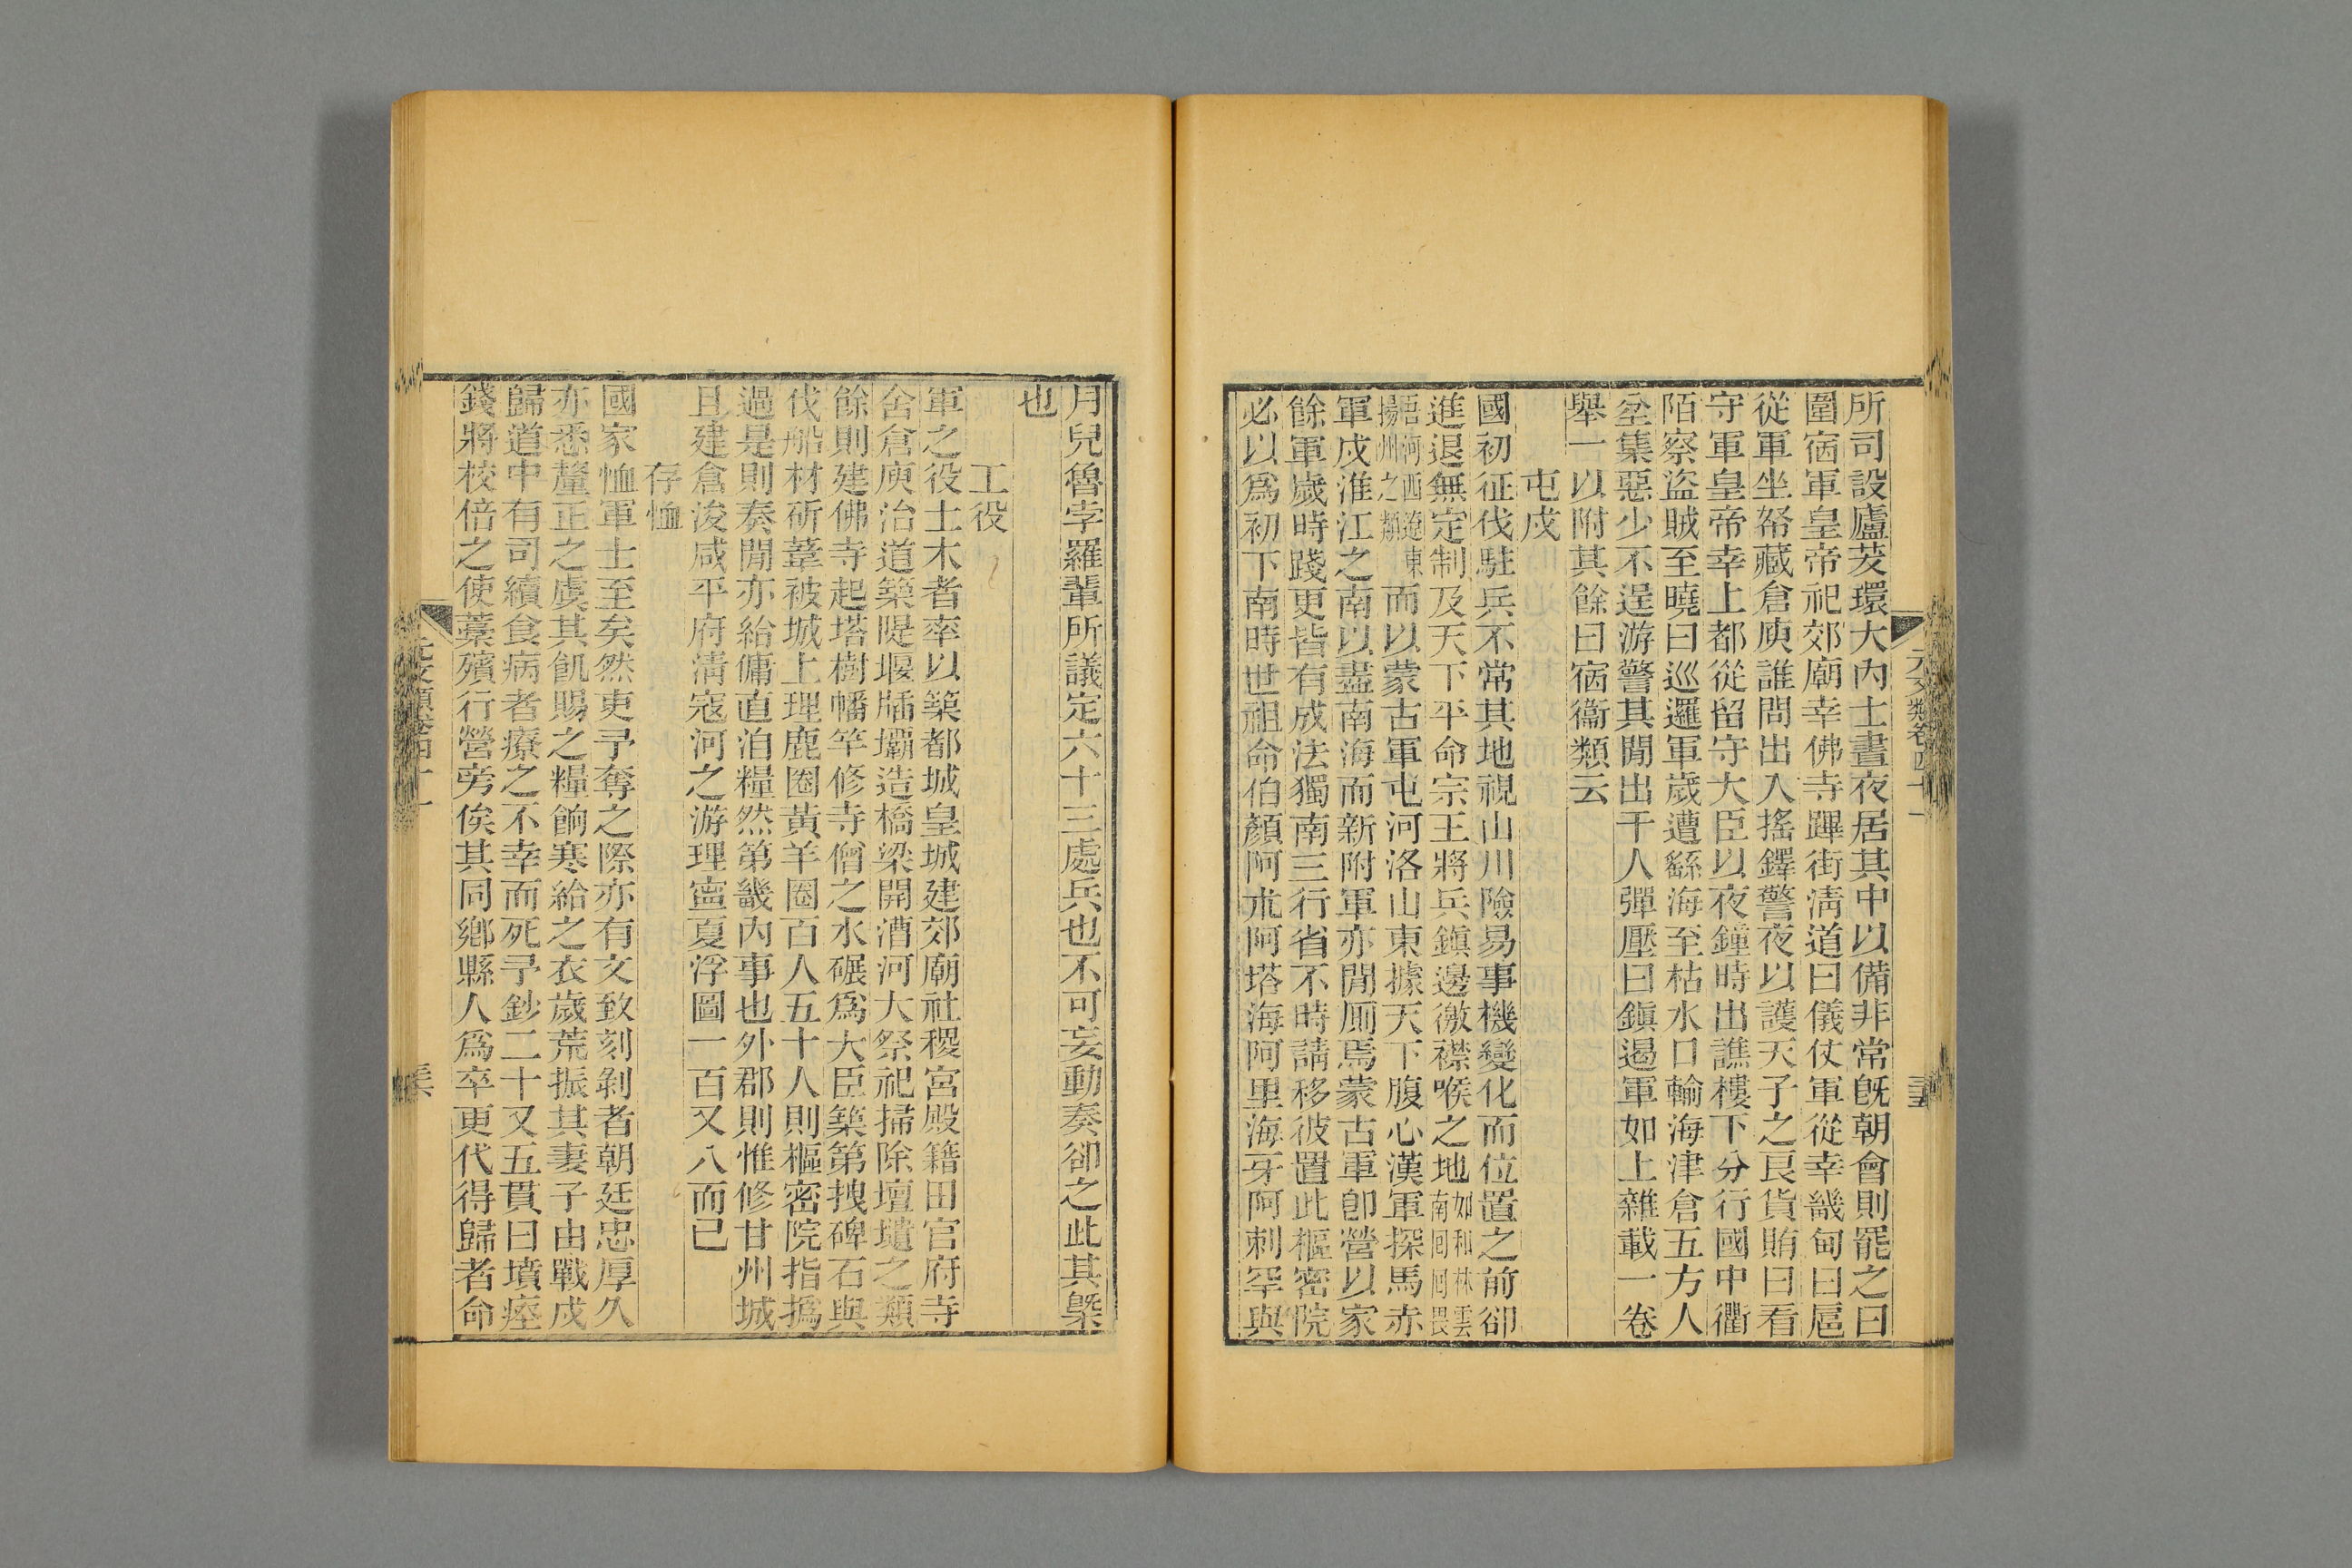 元文類卷四十一
所司設廬茇環大內士晝夜居其中以備非常旣朝會則罷之曰
圍宿軍皇帝祀郊廟幸佛寺蹕街清道曰儀仗軍從幸畿甸曰扈
從軍坐帑藏倉庾誰問出入搖鐸警夜以護天子之良貨賄曰看
守軍皇帝幸上都從留守大臣以夜鐘時出譙樓下分行國中衢
陌察盜賊至曉曰巡邏軍歲遭繇海至枯水口輸海津倉五方人
坌集惡少不逞游警其閒出千人彈壓曰鎭遏軍如上雜載一卷
舉一以附其餘曰宿衞類云
屯戍
國初征伐駐兵不常其地視山川險易事機變化而位置之前卻
進退無定制及天下平命宗王將兵鎭邊徼襟喉之地如和林雲南回回畏
吾河西遼東揚州之類而以蒙古軍屯河洛山東據天下腹心漢軍探馬赤
軍戍淮江之南以盡南海而新附軍亦閒厠焉蒙古軍卽營以家
餘軍歲時踐更皆有成法獨南三行省不時請移彼置此樞密院
必以爲初下南時世祖命伯顏阿朮阿塔海阿里海牙阿剌罕與
月兒魯孛羅輩所議定六十三處兵也不可妄動奏卻之此其槩
也
工役
軍之役土木者率以築都城皇城建郊廟社稷宮殿籍田官府寺
舍倉庾治道築隄堰牐壩造橋梁開漕河大祭祀掃除壇壝之類
餘則建佛寺起塔樹幡竿修寺僧之水碾爲大臣築第拽碑石與
伐船材斫葦被城上理鹿圈黃羊圈百人五十人則樞密院指撝
過是則奏聞亦給傭直泊糧然第畿內事也外郡則惟修甘州城
且建倉浚咸平府清寇河之游理寧夏浮圖一百又八而已
存恤
國家恤軍士至矣然吏予奪之際亦有文致刻剝者朝廷忠厚久
亦悉釐正之虞其飢賜之糧餉寒給之衣歲荒振其妻子由戰戍
歸道中有司續食病者療之不幸而死予鈔二十又五貫曰墳瘞
錢將校倍之使藁殯行營旁俟其同鄕縣人爲卒更代得歸者命